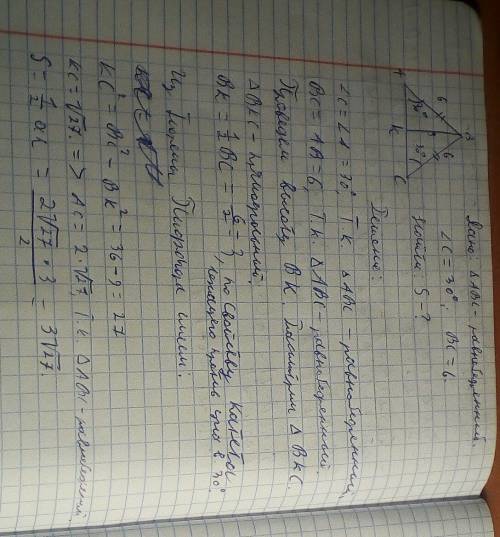 Дано: △ABC - равнобедренный.
∠C = 30°, BC = 6.
Найти: S - ?
B
6
6
30°
30°
A
K
C
Решение:
∠C = ∠A = 30°, Т.к. △ABC - равнобедренный,
BC = AB = 6, Т.к. △ABC - равнобедренный.
Проведём высоту BK. Рассмотрим △BKC.
△BKC - прямоугольный.
BK = 1/2 BC = 6/2 = 3, по свойству катета
лежащего против угла в 30°.
Из Теоремы Пифагора имеем:
KC² = BC² - BK² = 36 - 9 = 27
KC = √27 => AC = 2·√27, Т.к. △ABC - равнобедренный.
S = 1/2 ah = 2√27 * 3 / 2 = 3√27.